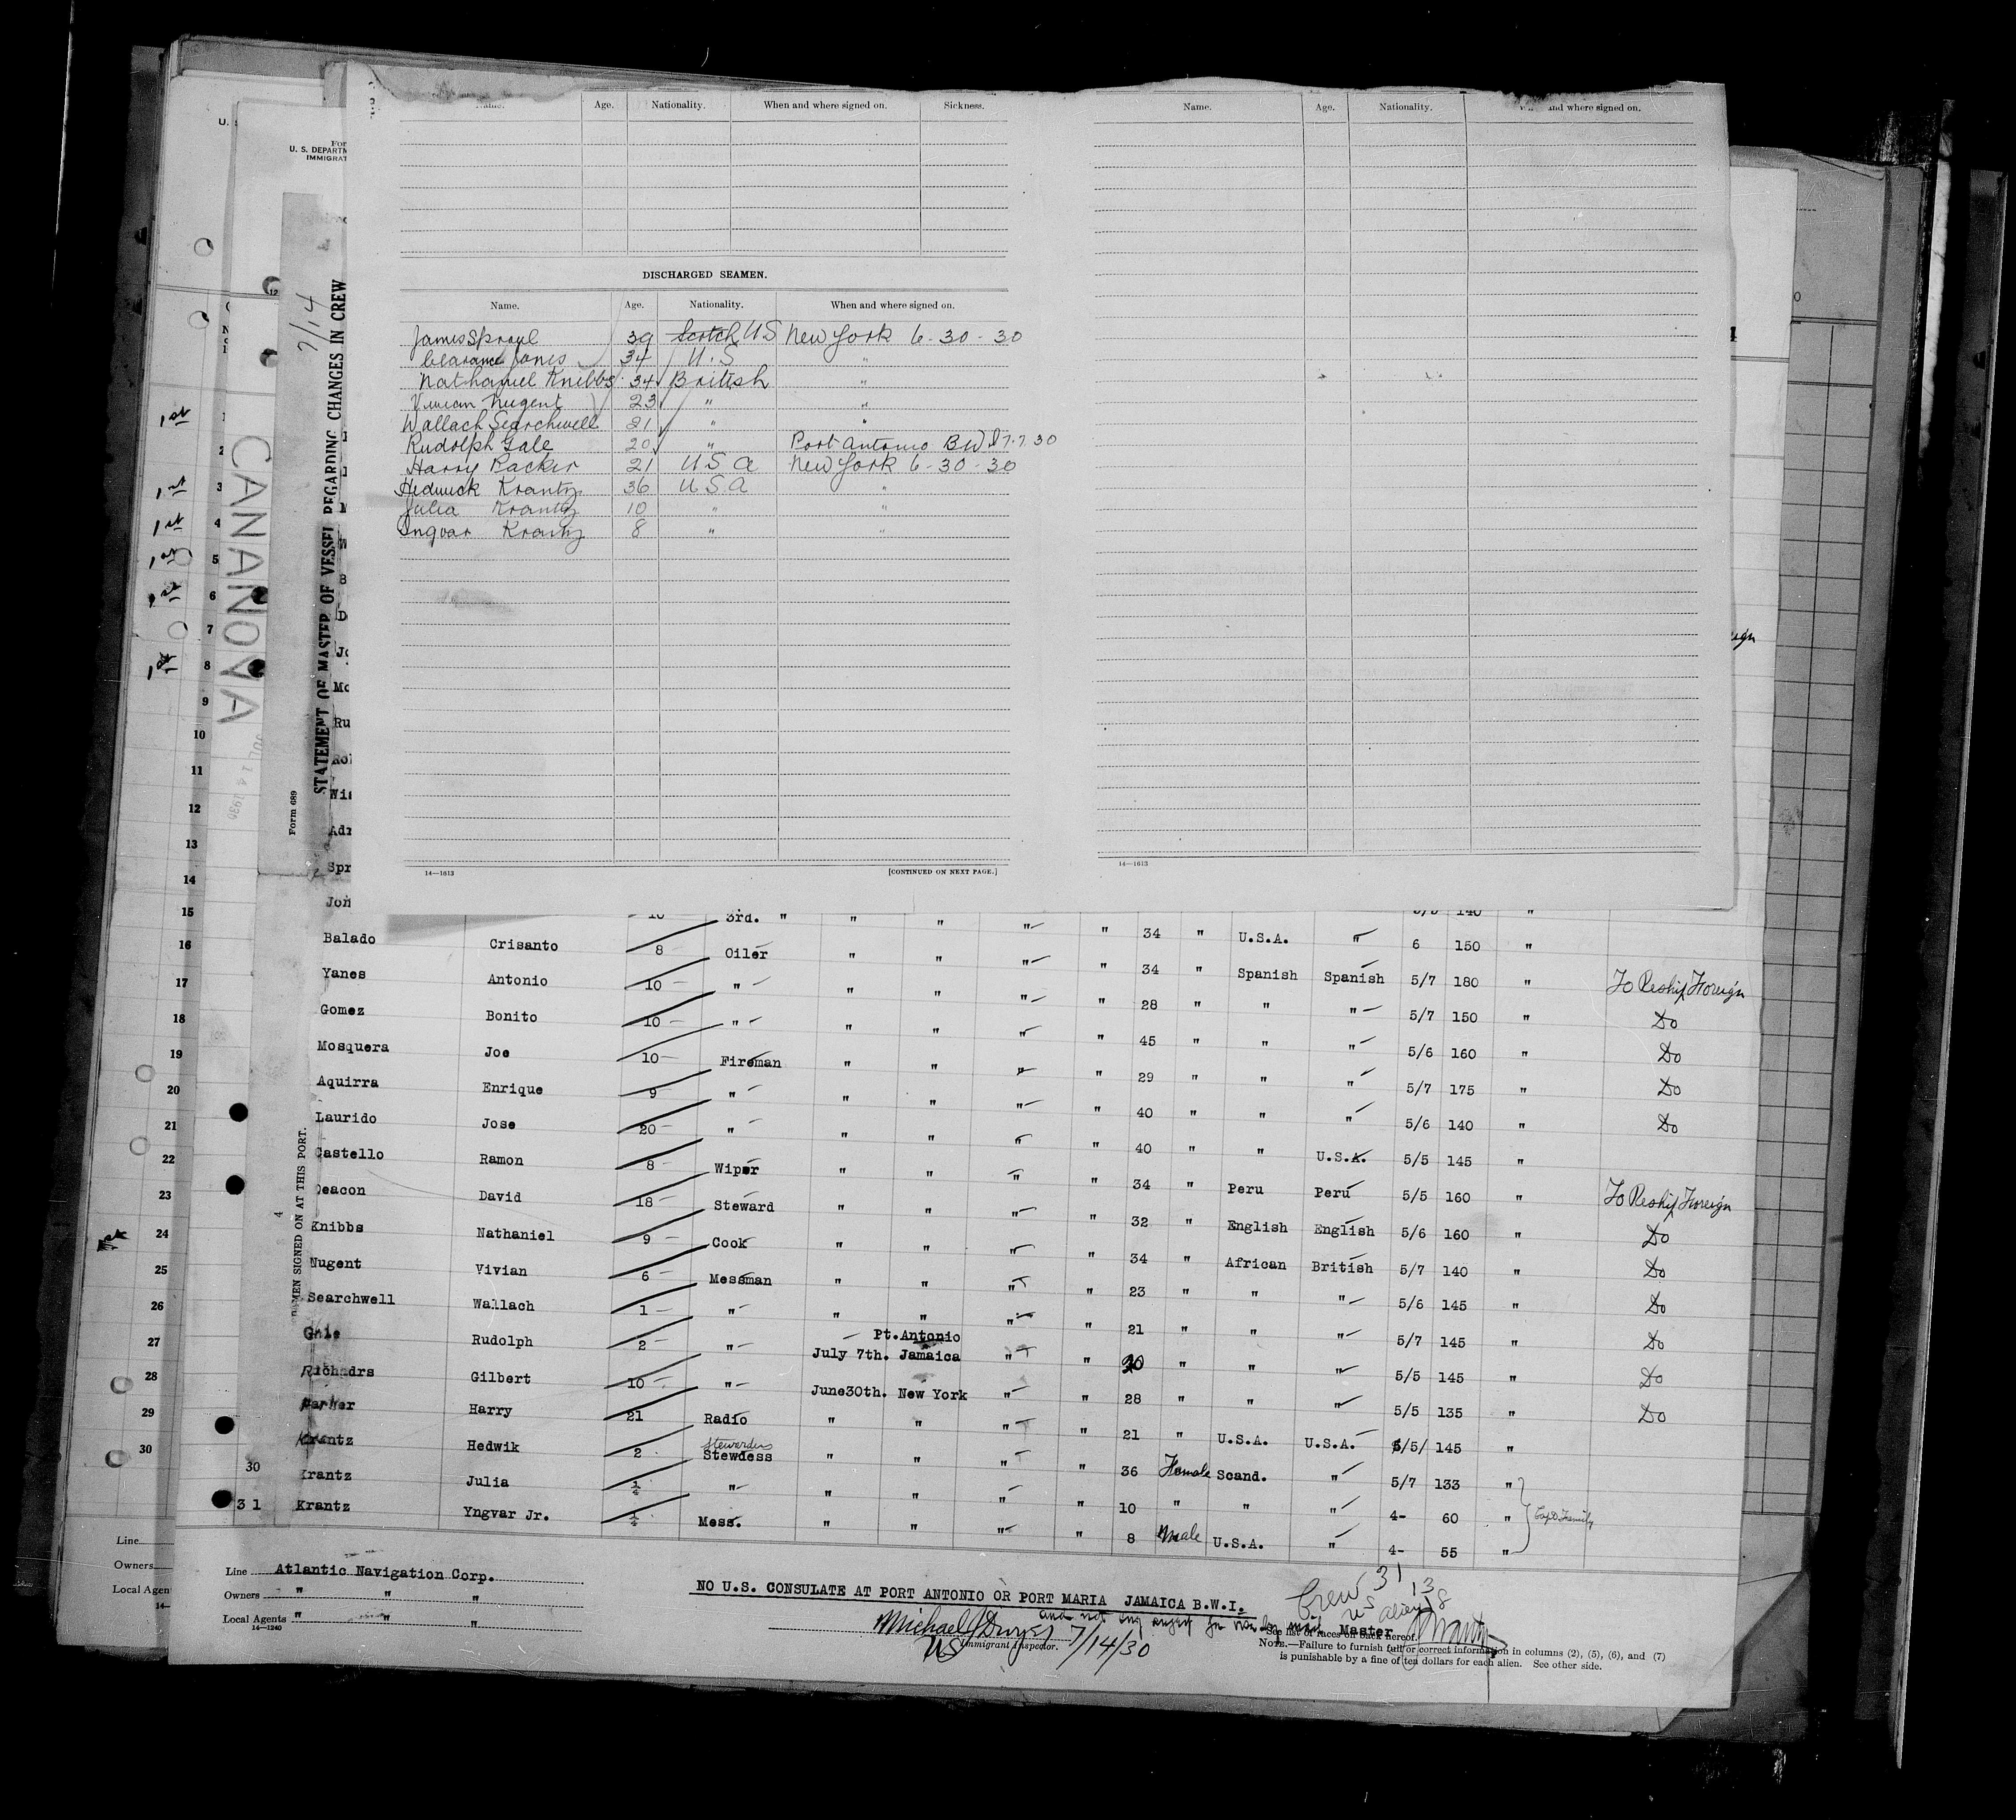 Name. Age. Nationality. When and where signed on. Sickness.
Name. Age. Nationality. and where signed on.
DISCHARGED SEAMEN.
Name. Age. Nationality. When and where signed on.
James Sproul 39 Scotch US New York 6-30-30
Clarance Jones 34 U.S "
Nathaniel Knibbs 34 British "
Vivian Nugent 23 " "
Wallach Searchwell 21 " "
Rudolph Gale 20 " Port Antonio BWI 7.7 30
Harry Packer 21 U S A New York 6-30-30
Hedwick Krantz 36 U.S.A "
Julia Krantz 10 " "
Ingvar Krantz 8 " "
14—1613 [CONTINUED ON NEXT PAGE.]
14—1613
U. S. DEPARTM
IMMIGRAT
7/14
STATEMENT OF MASTER OF VESSEL REGARDING CHANGES IN CREW
CANANOVA
JUL 14 1930
Form 689
4
SEAMEN SIGNED ON AT THIS PORT.
Ru
Wi
Adr
Spr
Jon
3rd. " " " " " 5/5 140 "
Balado Crisanto 8 Oiler " " " " 34 " U.S.A. " 6 150 "
Yanes Antonio 10 " " " " " 34 " Spanish Spanish 5/7 180 " To Reship Foreign
Gomez Bonito 10 " " " " " 28 " " " 5/7 150 " Do
Mosquera Joe 10 Fireman " " " " 45 " " " 5/6 160 " Do
Aquirra Enrique 9 " " " " " 29 " " " 5/7 175 " Do
Laurido Jose 20 " " " " " 40 " " " 5/6 140 " Do
Castello Ramon 8 Wiper " " " " 40 " " U.S.A. 5/5 145 "
Deacon David 18 Steward " " " " 34 " Peru Peru 5/5 160 " To Reship Foreign
Knibbs Nathaniel 9 Cook " " " " 32 " English English 5/6 160 " Do
Nugent Vivian 6 Messman " " " " 34 " African British 5/7 140 " Do
Searchwell Wallach 1 " " " " " 23 " " " 5/6 145 " Do
Gale Rudolph 2 " July 7th. Pt. Antonio Jamaica " " 21 " " " 5/7 145 " Do
Richadrs Gilbert 10 " June30th. New York " " 20 " " " 5/5 145 " Do
Parker Harry 21 Radio " " " " 28 " " " 5/5 135 " Do
Krantz Hedwik 2 Stewardess Stewdess " " " " 21 " U.S.A. U.S.A. 5/5/ 145 "
Krantz Julia 1/4 " " " " " 36 Female Scand. " 5/7 133 "
Krantz Yngvar Jr. 1/4 Mess. " " " " 10 " " " 4- 60 " Capt Family
8 Male U.S.A. " 4- 55 "
1st
1st
1st
1st
1st
1st
1 2 3 4 5 6 7 8 9 10 11 12 13 14 15 16 17 18 19 20 21 22 23 24 25 26 27 28 29 30
30
31
Line
Owners
Local Agen
Line Atlantic Navigation Corp.
Owners " " "
Local Agents " " "
14—1240
NO U.S. CONSULATE AT PORT ANTONIO OR PORT MARIA JAMAICA B.W.I.
Crew 31
US 13
Alien 18
Michael J Dwyer 7/14/30
US Immigrant Inspector.
Master Krantz
See list of races on back hereof.
NOTE.—Failure to furnish full or correct information in columns (2), (5), (6), and (7)
is punishable by a fine of ten dollars for each alien. See other side.